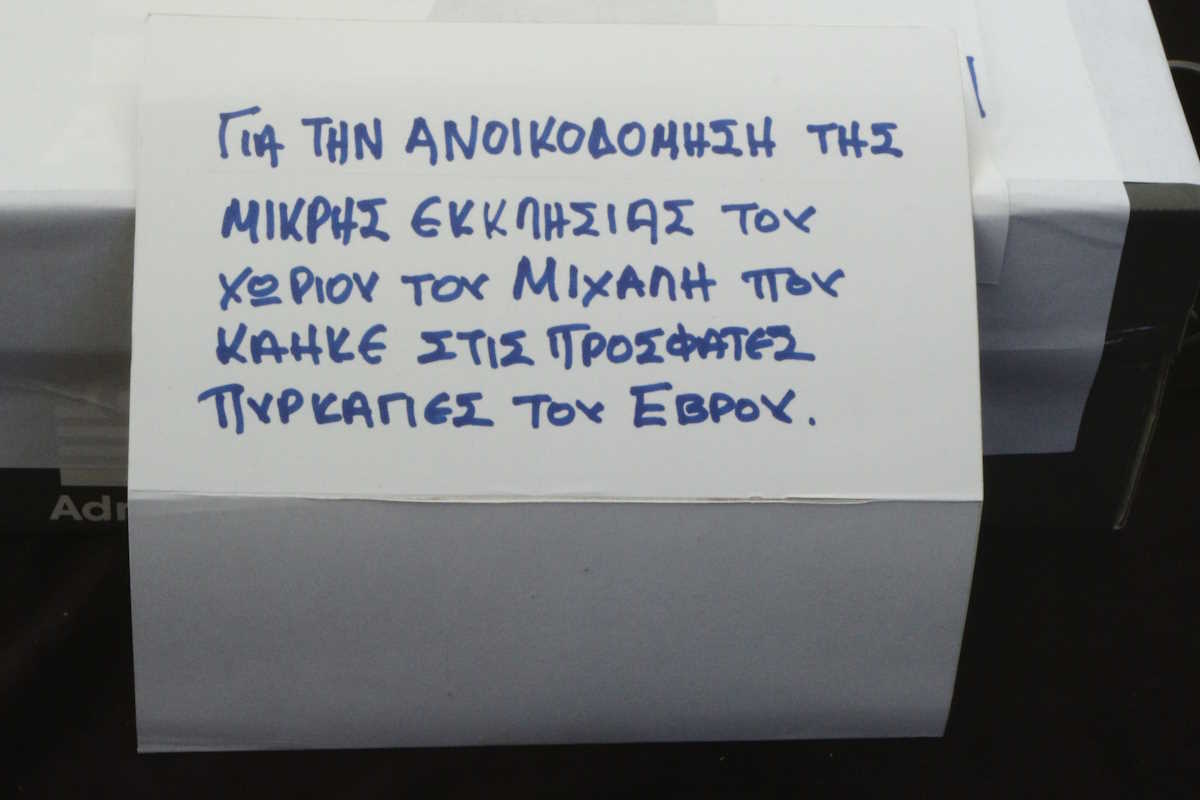 ΓΙΑ ΤΗΝ ΑΝΟΙΚΟΔΟΜΗΣΗ ΤΗΣ
ΜΙΚΡΗΣ ΕΚΚΛΗΣΙΑΣ ΤΟΥ
ΧΩΡΙΟΥ ΤΟΥ ΜΙΧΑΛΗ ΠΟΥ
ΚΑΗΚΕ ΣΤΙΣ ΠΡΟΣΦΑΤΕΣ
ΠΥΡΚΑΓΙΕΣ ΤΟΥ ΕΒΡΟΥ.
Adr